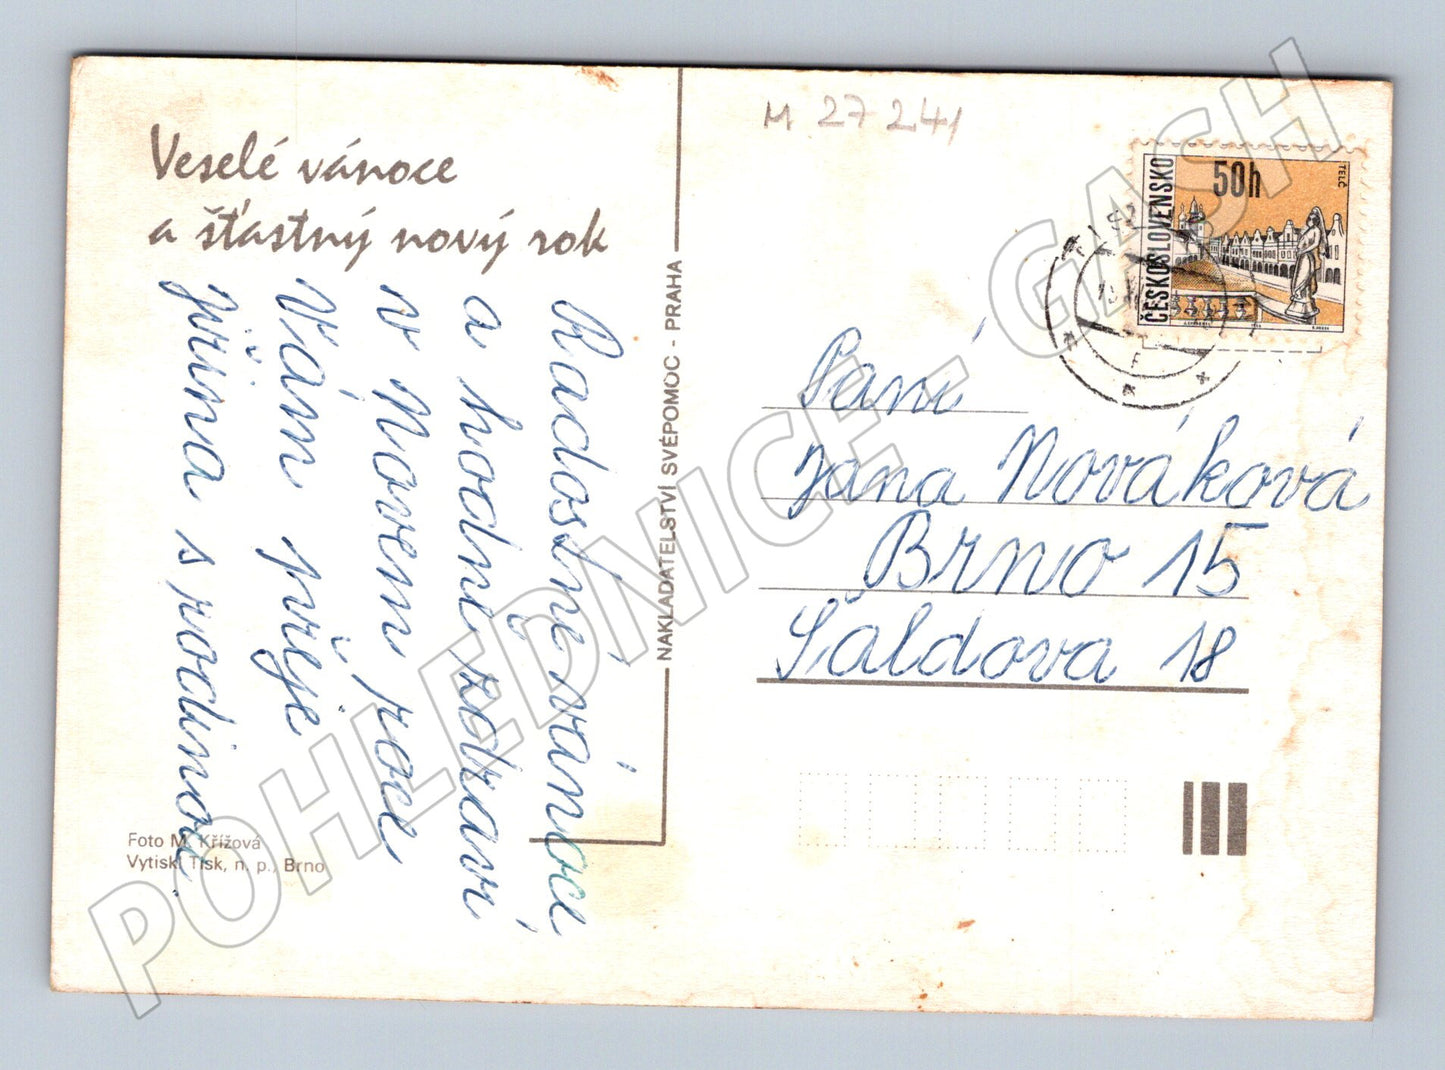 Veselé vánoce
a šťastný nový rok
Radostné vánoce
a hodně zdraví
v Novém roce
Vám přeje
Jiřina s rodinou.
Foto M. Křížová
Vytiskl Tisk, n. p., Brno
NAKLADATELSTVÍ SVÉPOMOC - PRAHA
M 27 241
ČESKOSLOVENSKO
50h
TELČ
Paní
Jana Nováková
Brno 15
Šaldova 18
POHLEDNICE - GASH